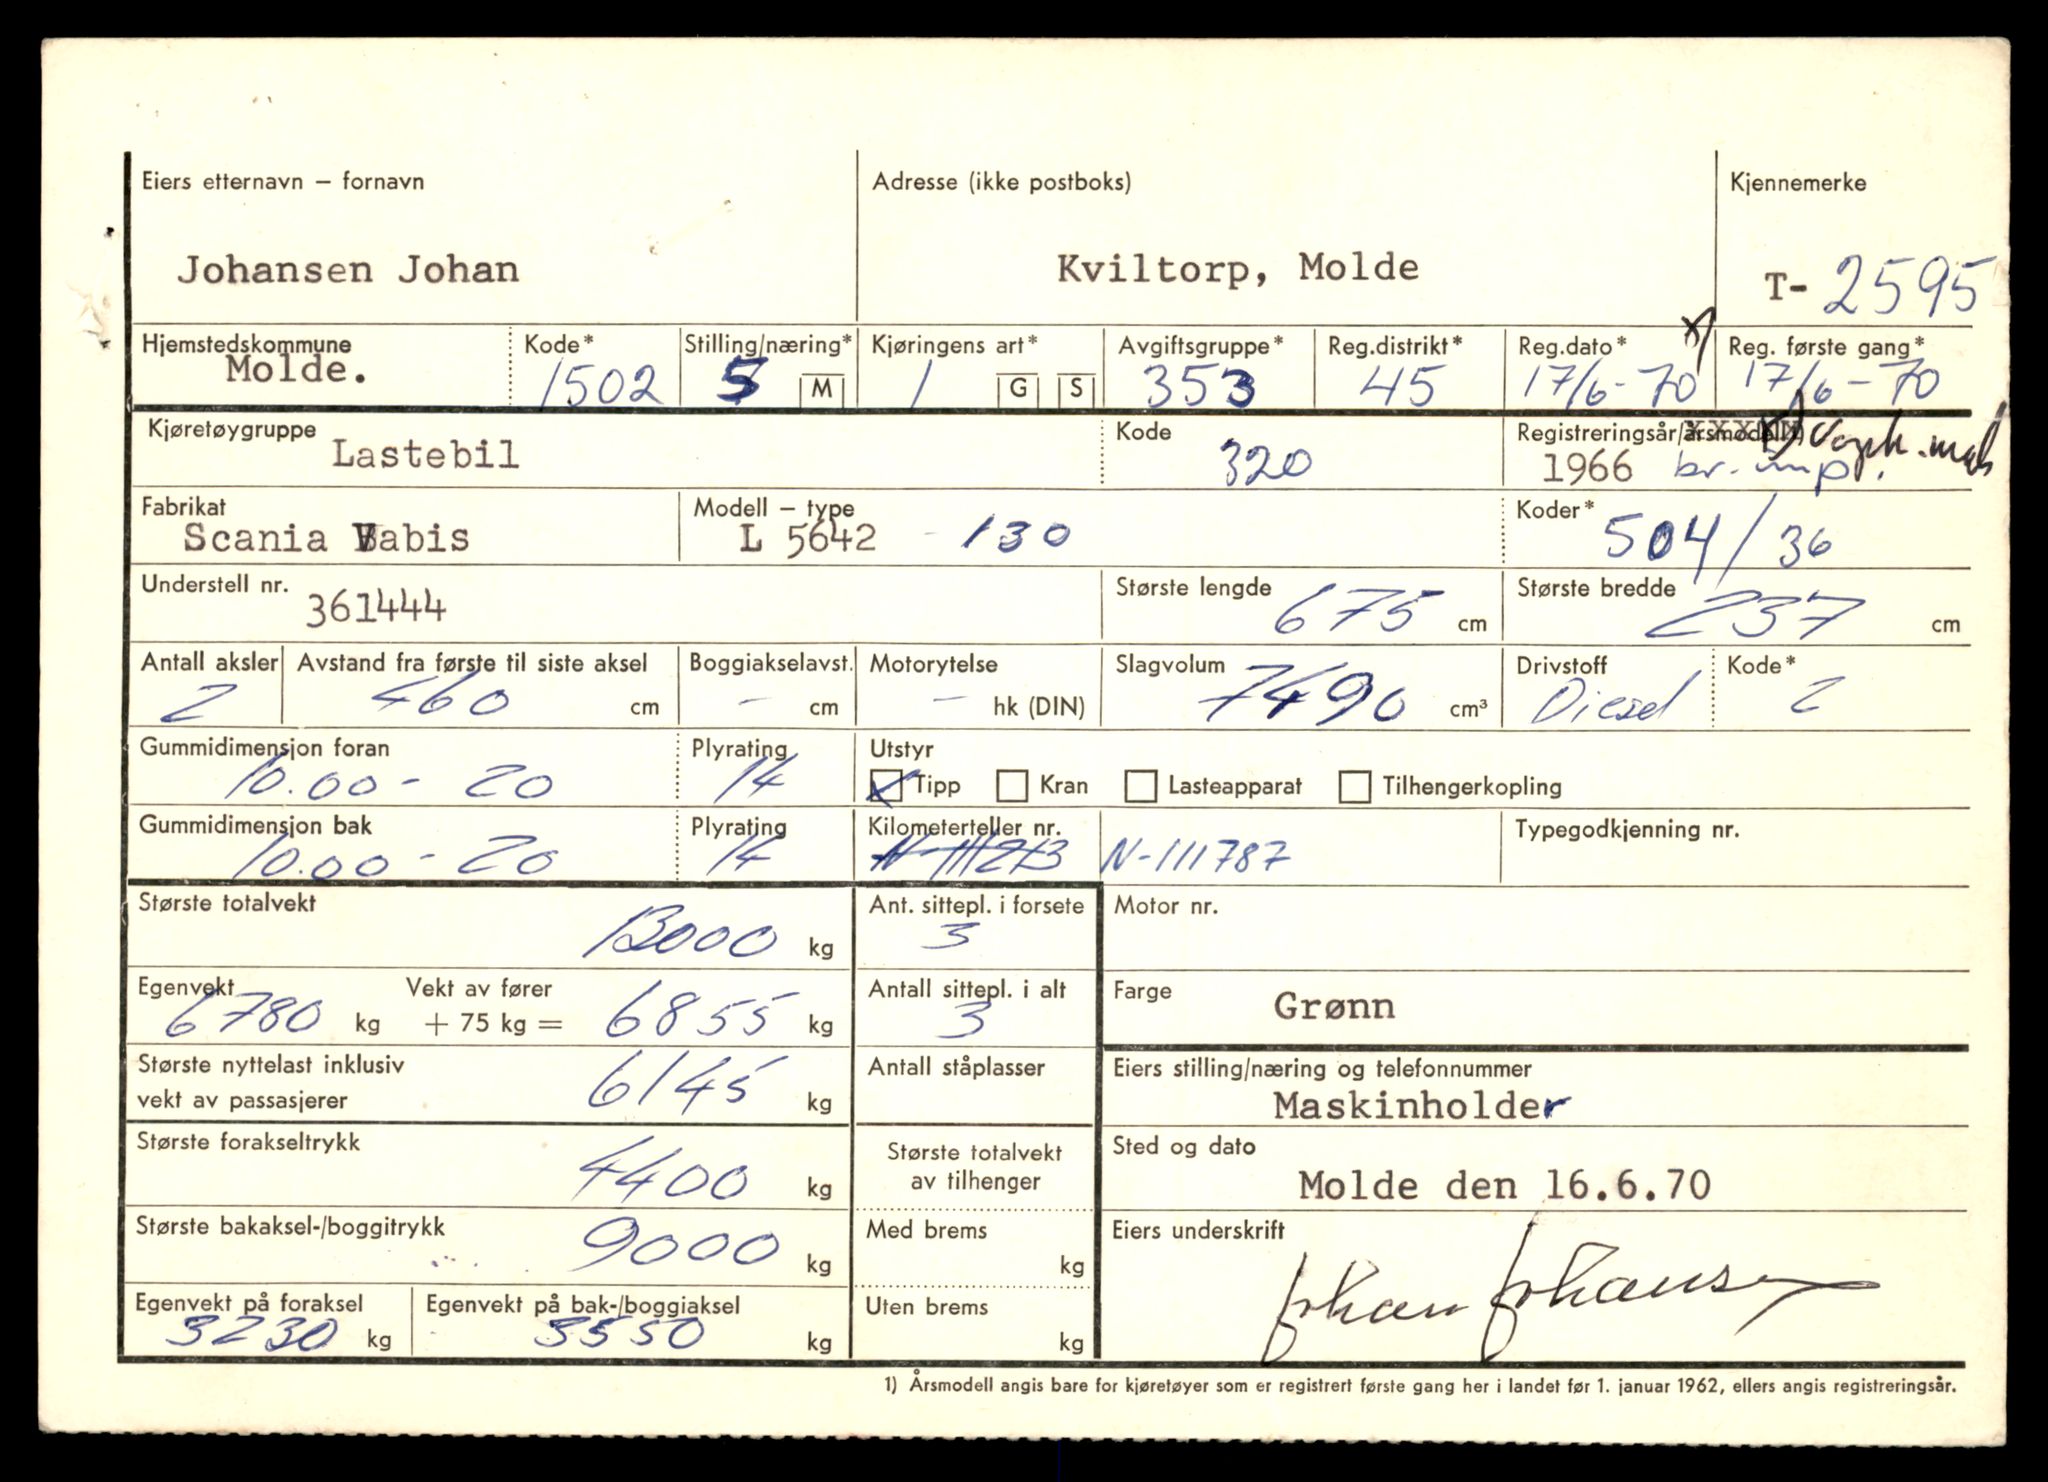 Eiers etternavn – fornavn Adresse (ikke postboks) Kjennemerke
Johansen Johan Kviltorp, Molde T- 2595
Hjemstedskommune Kode* Stilling/næring* Kjøringens art* Avgiftsgruppe* Reg.distrikt* Reg.dato* Reg. første gang*
Molde. 1502 5 M 1 G S 353 45 17/6-70 17/6-70
Kjøretøygruppe Kode Registreringsår/årsmodell
Lastebil 320 1966 br. imp.
Fabrikat Modell – type Koder*
Scania Vabis L 5642 - 130 504/36
Understell nr. Største lengde Største bredde
361444 675 cm 237 cm
Antall aksler Avstand fra første til siste aksel Boggiakselavst. Motorytelse Slagvolum Drivstoff Kode*
2 460 cm - cm - hk (DIN) 7490 cm³ Diesel 2
Gummidimensjon foran Plyrating Utstyr
10.00-20 14 Tipp Kran Lasteapparat Tilhengerkopling
Gummidimensjon bak Plyrating Kilometerteller nr. Typegodkjenning nr.
10.00-20 14 N-111213 N-111787
Største totalvekt Ant. sittepl. i forsete Motor nr.
13000 kg 3
Egenvekt Vekt av fører Antall sittepl. i alt Farge
6780 kg + 75 kg = 6855 kg 3 Grønn
Største nyttelast inklusiv Antall ståplasser Eiers stilling/næring og telefonnummer
vekt av passasjerer 6145 kg Maskinholder
Største forakseltrykk Største totalvekt Sted og dato
4400 kg av tilhenger Molde den 16.6.70
Største bakaksel-/boggitrykk Med brems Eiers underskrift
9000 kg kg Johan Johansen
Egenvekt på foraksel Egenvekt på bak-/boggiaksel Uten brems
3230 kg 3550 kg kg
1) Årsmodell angis bare for kjøretøyer som er registrert første gang her i landet før 1. januar 1962, ellers angis registreringsår.